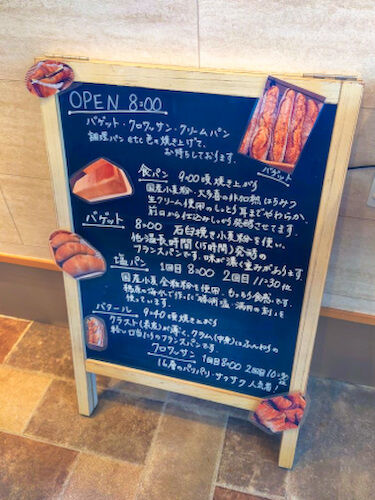 OPEN 8:00
バゲット・クロワッサン・クリームパン
調理パン etc 色々焼き上げて、
お待ちしております。
バゲット
食パン 9:00頃焼き上がり
国産小麦粉・大多喜の非加熱はちみつ
生クリーム使用のしっとり耳までやわらか、
前日から仕込みしっかり発酵させてます。
バゲット 8:00 石臼挽き小麦粉を使い、
低温長時間(15時間)発酵の
フランスパンです。味が濃く重みがあります。
塩パン 1回目 8:00 2回目 11:30位
国産小麦 全粒粉を使用、もっちり食感です。
の海水で作った
使っています。
バタール 9:40頃焼き上がり
クラスト(表皮)が薄く、クラム(中身)はふんわりの
軽い口当たりのフランスパンです。
クロワッサン 1回目 8:00 2回目 10:30位
16層のパリパリ・サクサク 人気番